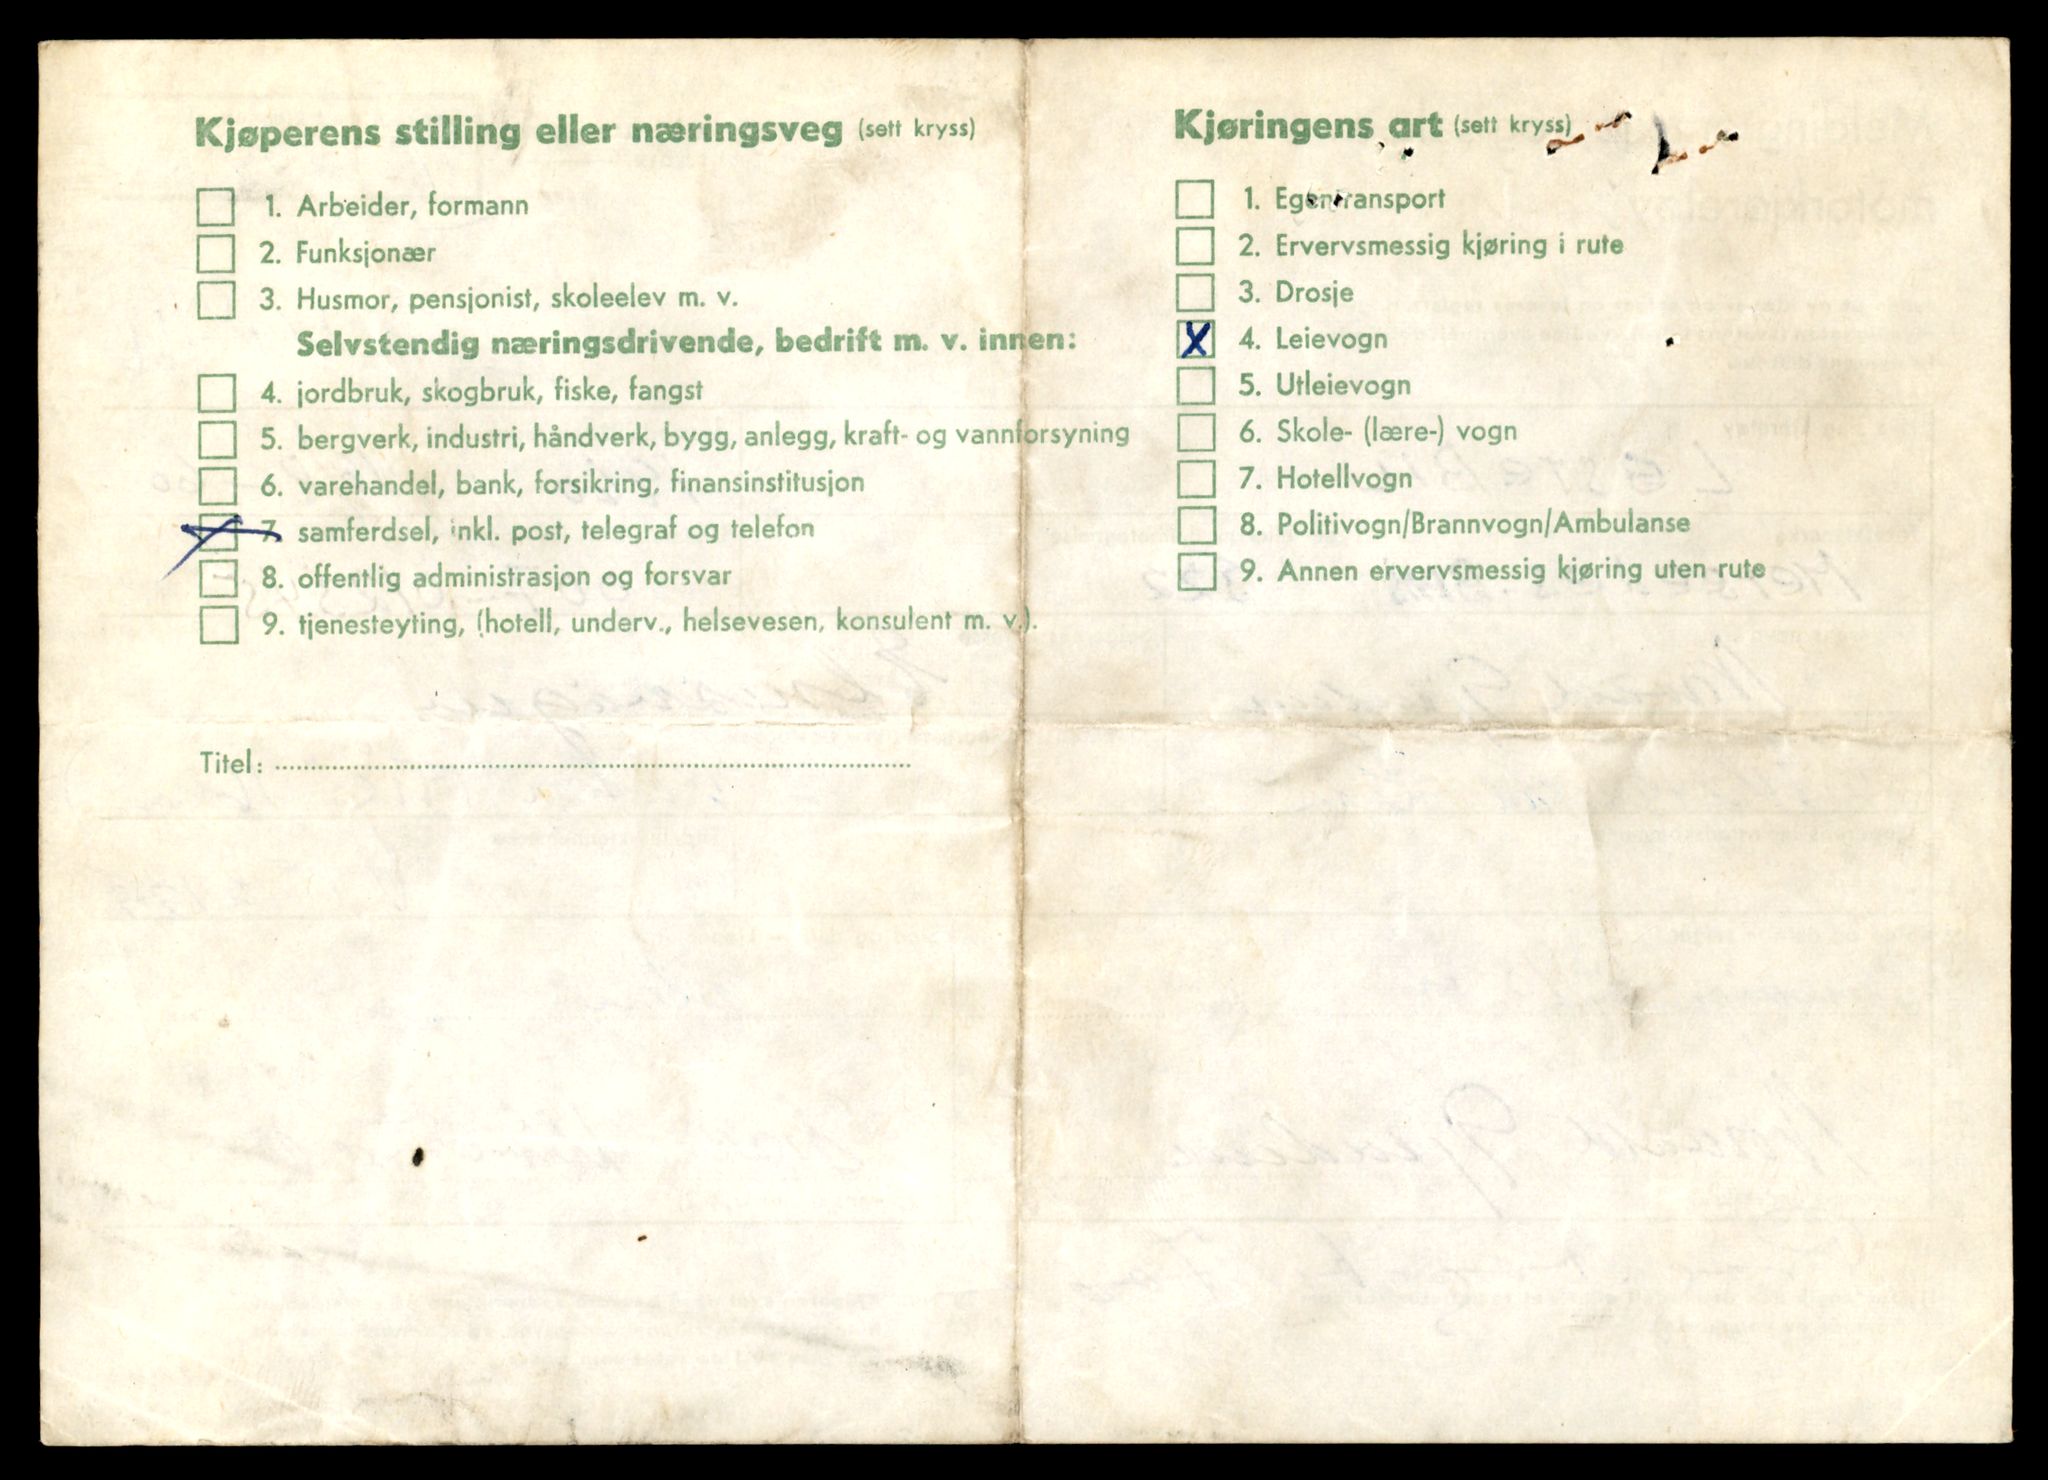 Kjøperens stilling eller næringsveg (sett kryss)
1. Arbeider, formann
2. Funksjonær
3. Husmor, pensjonist, skoleelev m. v.
Selvstendig næringsdrivende, bedrift m. v. innen:
4. jordbruk, skogbruk, fiske, fangst
5. bergverk, industri, håndverk, bygg, anlegg, kraft- og vannforsyning
6. varehandel, bank, forsikring, finansinstitusjon
X 7. samferdsel, inkl. post, telegraf og telefon
8. offentlig administrasjon og forsvar
9. tjenesteyting, (hotell, underv., helsevesen, konsulent m. v.).
Titel:
Kjøringens art (sett kryss)
1. Egentransport
2. Ervervsmessig kjøring i rute
3. Drosje
X 4. Leievogn
5. Utleievogn
6. Skole- (lære-) vogn
7. Hotellvogn
8. Politivogn/Brannvogn/Ambulanse
9. Annen ervervsmessig kjøring uten rute